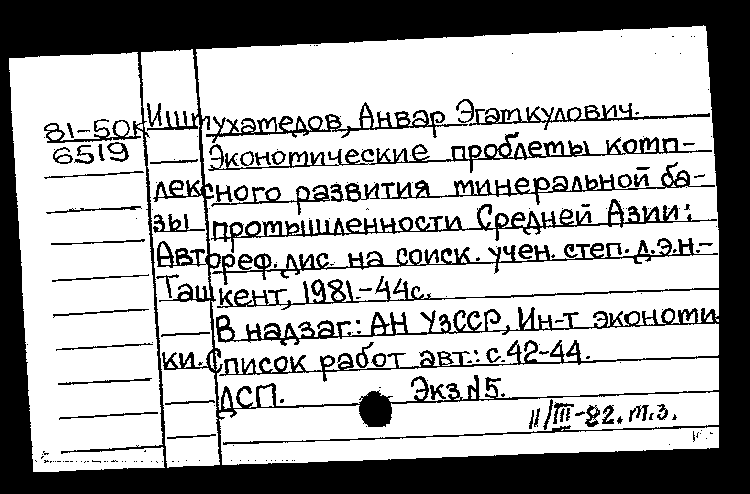 81-50к
6519
Иштухамедов, Анвар Эгамкулович.
Экономические проблемы комп-
лексного развития минеральной ба-
зы промышленности Средней Азии:
Автореф. дис. на соиск. учен. степ. д.э.н.-
Ташкент, 1981.-44с.
В надзаг.: АН УзССР, Ин-т экономи
ки. Список работ авт.: с.42-44.
ДСП. Экз №5.
11/III-82. т.з.